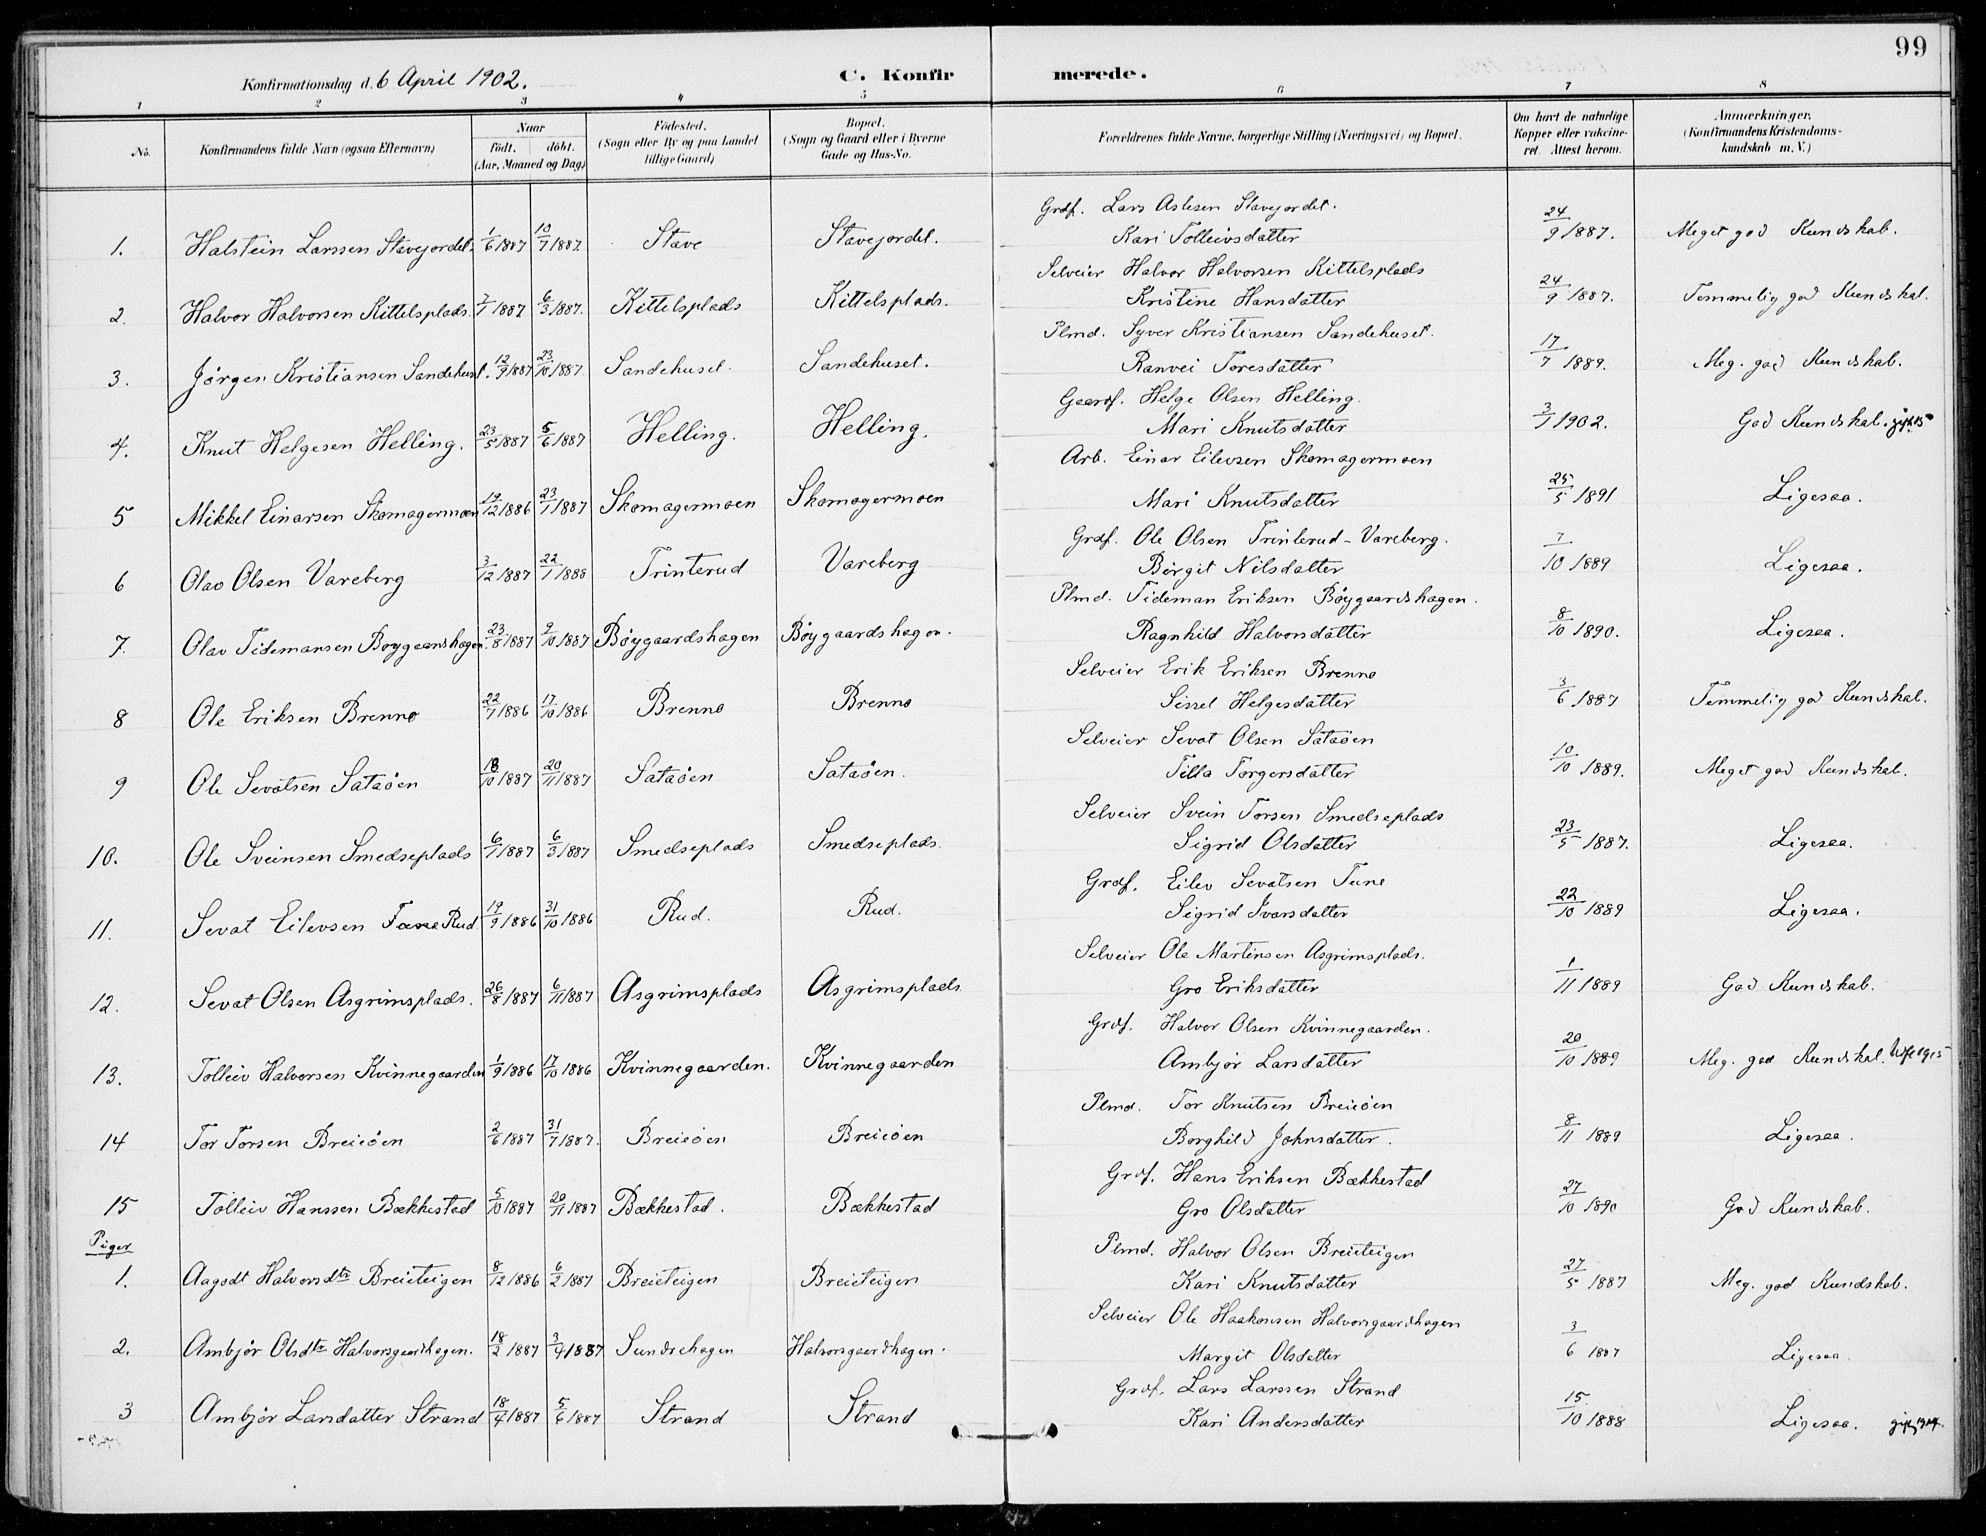 99
Konfirmationsdag d. 6 April 1902.
C. Konfirmerede.
1 2 3 4 5 6 7 8
No. | Konfirmandens fulde Navn (ogsaa Efternavn) | Naar født. døbt. (Aar, Maaned og Dag) | Fødested. (Sogn eller By og paa Landet tillige Gaard) | Bopæl. (Sogn og Gaard eller i Byerne Gade og Hus-No. | Forældrenes fulde Navne, borgerlige Stilling (Næringsvei) og Bopæl. | Om havt de naturlige Kopper eller vaccineret. Attest herom. | Anmerkninger. (Konfirmandens Kristendomskundskab m. V.)
1. Halstein Larssen Stavejordet. 1/6 1887 10/7 1887. Stave Stavejordet. Grdf. Lars Aslesen Stavejordet. Kari Tolleivsdatter 24/9 1887. Meget god Kundskab.
2. Halvor Halvorsen Kittelsplads. 7/1 1887 6/3 1887. Kittelsplads Kittelsplads. Selveier Halvor Halvorsen Kittelsplads Kristine Hansdatter 24/9 1887. Temmelig god Kundskab.
3. Jørgen Kristiansen Sandehuset. 12/9 1887 23/10 1887 Sandehuset. Sandehuset. Plmd. Syver Kristiansen Sandehuset. Ranvei Toresdatter 17/7 1889. Meg. god Kundskab.
4. Knut Helgesen Helling. 23/5 1887 5/6 1887 Helling. Helling. Gaardf. Helge Olsen Helling. Mari Knutsdatter 3/1 1902. God Kundskab.
5 Mikkel Einarsen Skomagermoen 19/12 1886 23/1 1887 Skomagermoen Skomagermoen Arb. Einar Eilevsen Skomagermoen Mari Knutsdatter 25/5 1891 Ligesaa.
6 Olav Olsen Vareberg 3/12 1887 22/1 1888 Trinterud Vareberg Grdf. Ole Olsen Trinterud-Vareberg. Birgit Nilsdatter 7/10 1889 Ligesaa.
7. Olav Tidemansen Bøygaardshagen. 23/8 1887 9/10 1887 Bøygaardshagen Bøygaardshagen. Plmd. Tideman Eriksen Bøygaardshagen. Ragnhild Halvorsdatter 8/10 1890. Ligesaa.
8 Ole Eriksen Brenno 22/7 1886 17/10 1886 Brenno Brenno Selveier Erik Eriksen Brenno Sissel Helgesdatter 3/6 1887 Temmelig god Kundskab.
9 Ole Sevatsen Sataøen 18/10 1887 20/11 1887 Sataøen Sataøen. Selveier Sevat Olsen Sataøen Tilla Torgersdatter 10/10 1889. Meget god Kundskab.
10. Ole Sveinsen Smedseplads 6/1 1887 6/3 1887 Smedseplads Smedseplads. Selveier Svein Torsen Smedseplads Sigrid Olsdatter 23/5 1887. Ligesaa.
11. Sevat Eilevsen Tune Rud. 19/9 1886 31/10 1886 Rud. Rud. Grdf. Eilev Sevatsen Tune Sigrid Ivarsdatter 22/10 1889 Ligesaa.
12. Sevat Olsen Asgrimsplads. 26/8 1887 6/11 1887 Asgrimsplads Asgrimsplads Selveier Ole Martinsen Asgrimsplads. Gro Eriksdatter 1/11 1889 God Kundskab.
13. Tolleiv Halvorsen Kvinnegaarden 1/9 1886 17/10 1886 Kvinnegaarden. Kvinnegaarden Grdf. Halvor Olsen Kvinnegaarden. Ambjør Larsdatter 20/10 1889 Meg. god Kundskab.
14 Tor Torsen Breieøen 2/6 1887 31/7 1887. Breieøen Breieøen Plmd. Tor Knutsen Breieøen Borghild Johnsdatter. 8/11 1889 Ligesaa.
15 Tolleiv Hanssen Bækkestad 5/10 1887 20/11 1887 Bækkestad. Bækkestad Grdf. Hans Eriksen Bækkestad Gro Olsdatter 27/10 1890 God Kundskab.
Piger
1. Aagodt Halvorsdtr Breieteigen 8/12 1886 6/2 1887 Breieteigen Breieteigen Plmd. Halvor Olsen Breieteigen Kari Knutsdatter 27/5 1887 Meg. god Kundskab.
2. Ambjør Olsdtr Halvorsgaardhagen. 18/2 1887 3/4 1887 Sundrehagen Halvorsgaardhagen. Selveier Ole Haakonsen Halvorsgaardhagen Margit Olsdatter 3/6 1887 Ligesaa.
3 Ambjør Larsdatter Strand 18/4 1887 5/6 1887 Strand Strand Grdf. Lars Larssen Strand Kari Andersdatter 15/10 1888 Ligesaa.